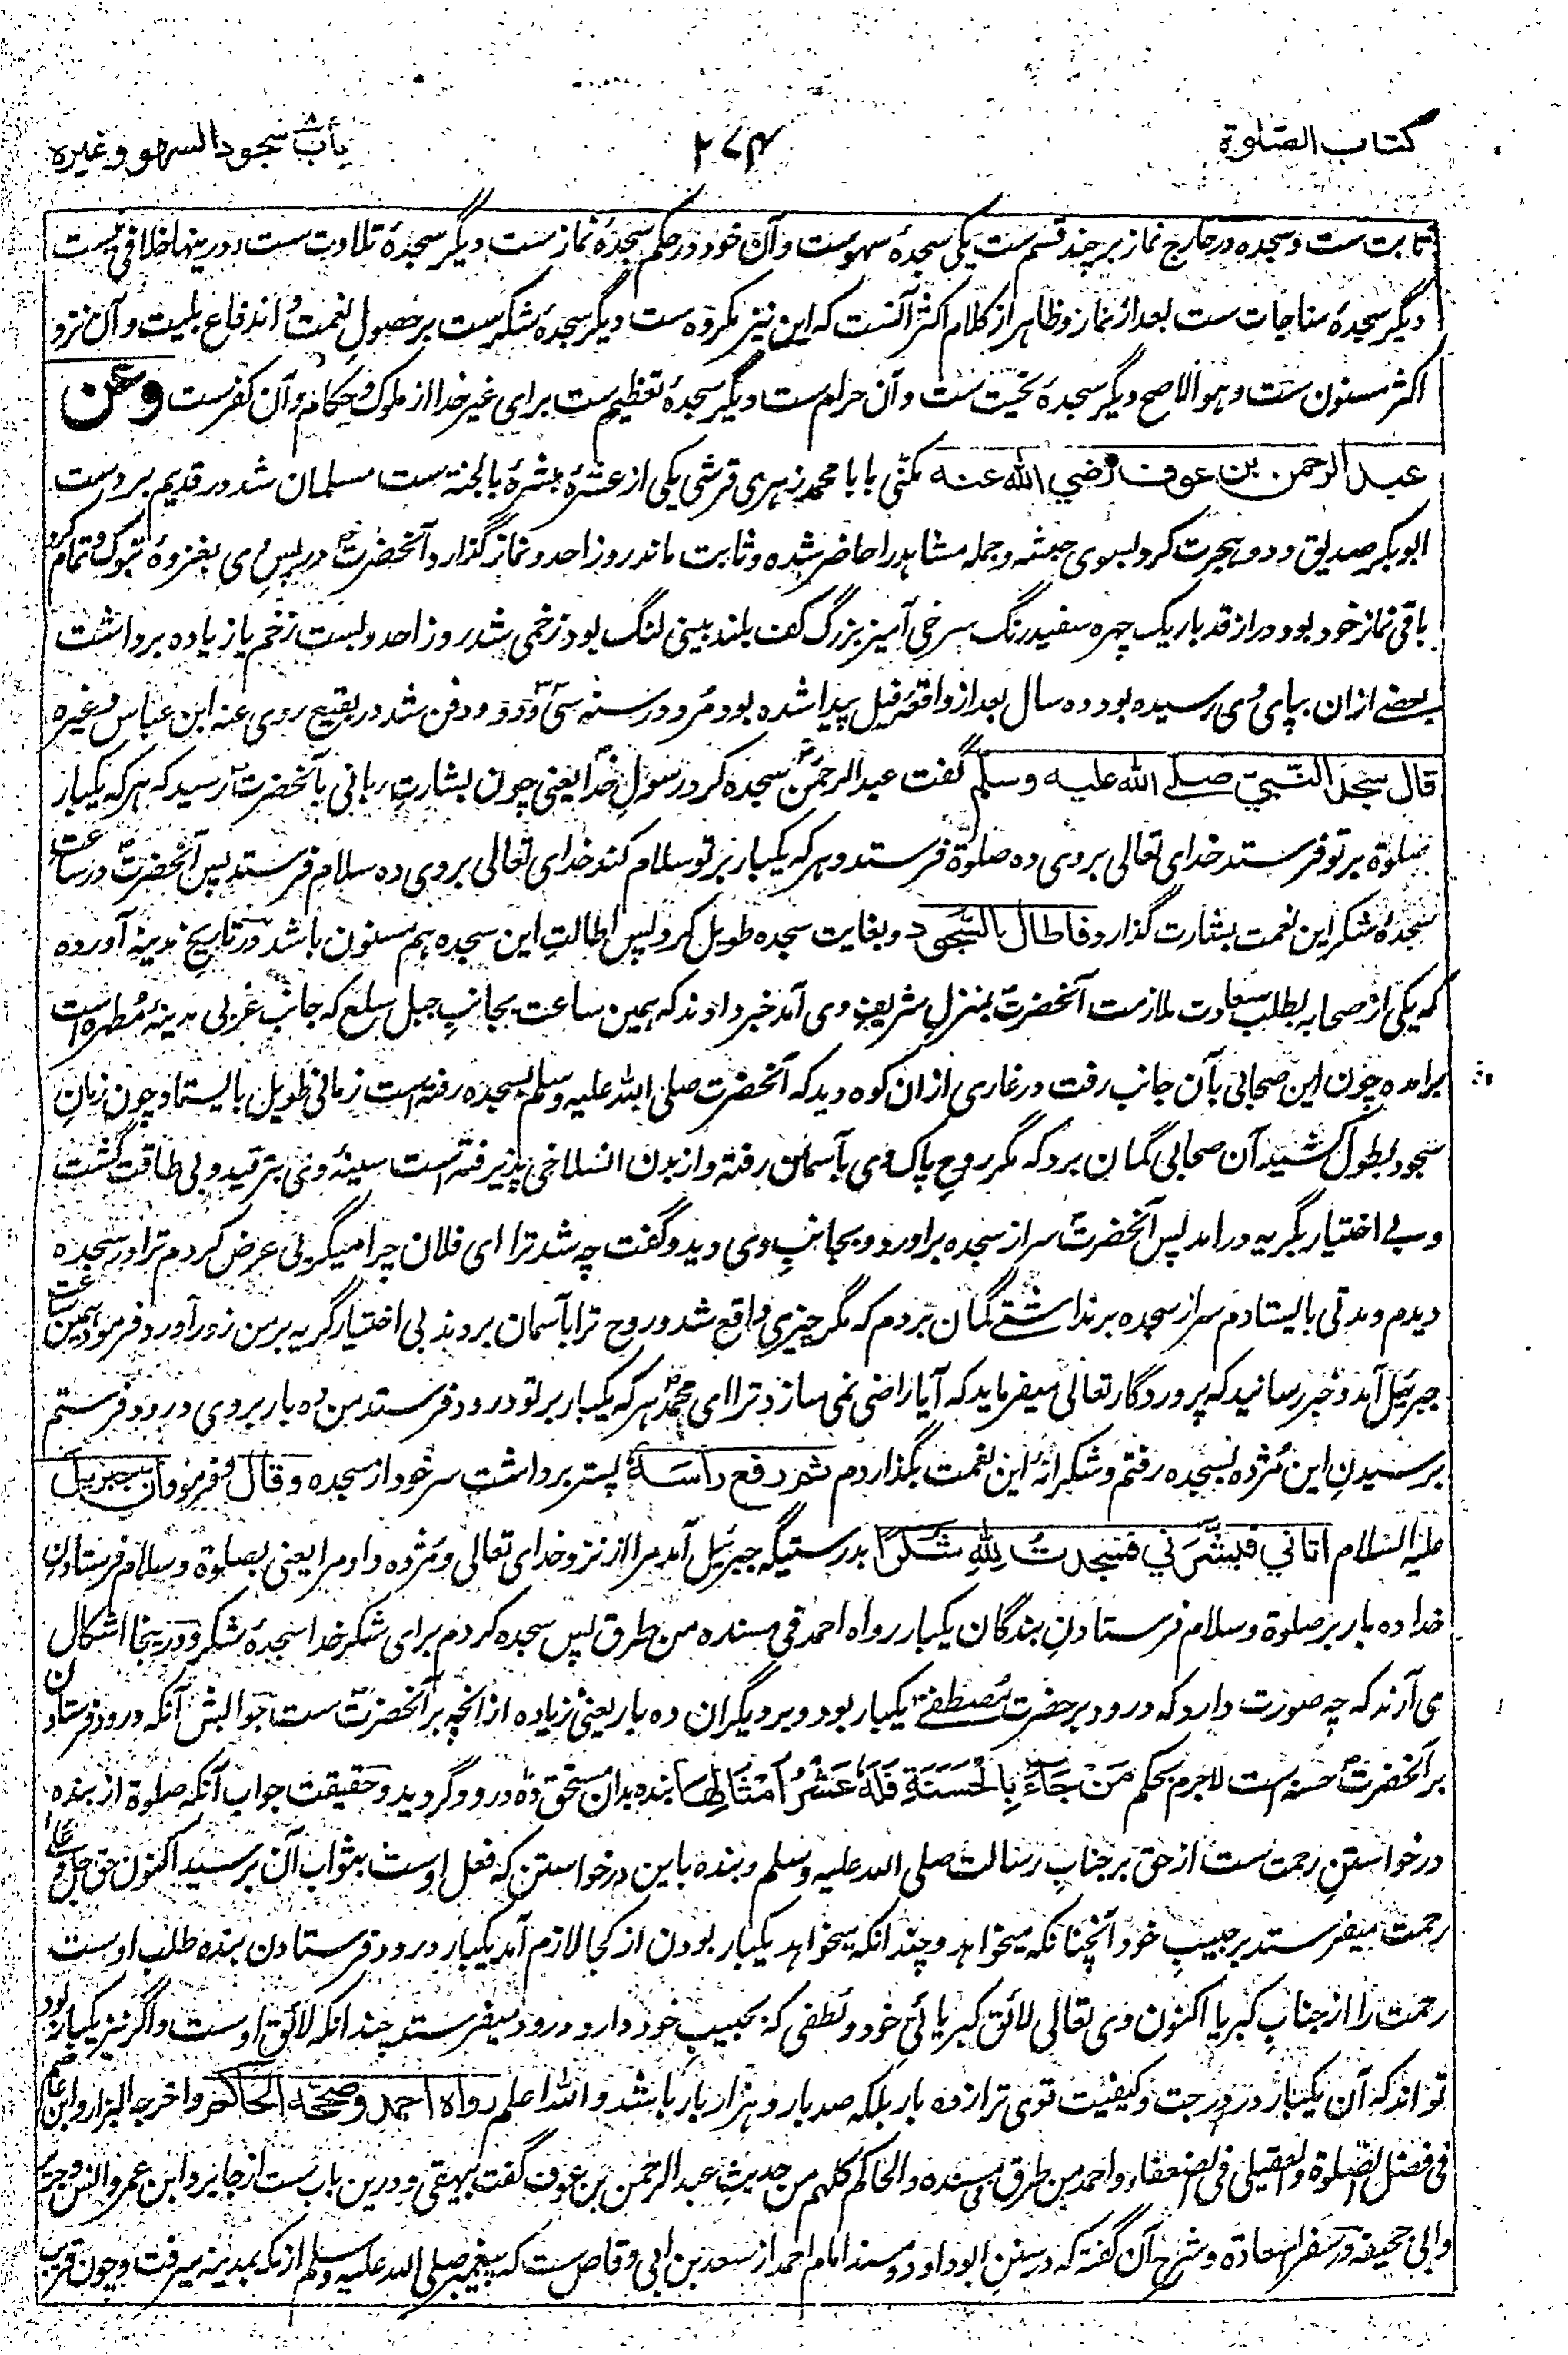 كتاب الصلوة ٢٧٤ باب سجود السهو وغيره
ثابت ست و سجده در خارج نماز بر چند قسم ست یکی سجدهٔ سهوست و آن خود در حکم سجدهٔ نمازست دیگر سجدهٔ تلاوت ست و درینها خلافی نیست
دیگر سجدهٔ مناجات ست بعد از نماز و ظاهر از کلام اکثر آنست که این نیز مکروه ست دیگر سجدهٔ شکرست بر حصول نعمت و اندفاع بلیت و آن نزد
اکثر مسنون ست و هو الاصح دیگر سجدهٔ تحیت ست و آن حرام ست دیگر سجدهٔ تعظیم ست برای غیر خدا از ملوک و حکام و آن کفرست وعن
عبد الرحمن بن عوف رضي الله عنه مکنّی بابا محمد زهری قرشی یکی از عشرهٔ مبشرهٔ بالجنة ست مسلمان شد در قدیم بر دست
ابو بکر صدیق و دو هجرت کرد بسوی حبشه و جمله مشاهد را حاضر شده و ثابت ماند روز احد و نماز گذارد آنحضرت در پس وی بغزوهٔ تبوک و تمام کرد
باقی نماز خود بود دراز قد باریک چهره سفید رنگ سرخی آمیز بزرگ کف بلند بینی لنگ بود زخمی شد روز احد و بست زخم یا زیاده برداشت
بعضے ازان بپای وی رسیده بود ده سال بعد از واقعهٔ فیل پیدا شده بود مرد در سنه سی و دو و دفن شد در بقیع روی عنه ابن عباس و غیره
قال سجد النبي صلے الله عليه وسلم گفت عبد الرحمن سجده کرد رسول خدا یعنی چون بشارت ربانی بآنحضرت رسید که هرکه یکبار
صلوة بر تو فرستد خدای تعالی بر وی ده صلوة فرستد و هرکه یکبار بر تو سلام کند خدای تعالی بر وی ده سلام فرستد پس آنحضرت در ساعت
سجدهٔ شکر این نعمت بشارت گذارد فاطال السجود و بغایت سجده طویل کرد پس اطالت این سجده هم مسنون باشد در تاریخ مدینه آورده
که یکی از صحابه بطلب سعادت ملازمت آنحضرت بمنزل شریف وی آمد خبر دادند که همین ساعت بجانب جبل سلع که جانب غربی مدینهٔ مطهره است
برامده چون این صحابی بآن جانب رفت در غاری ازان کوه دید که آنحضرت صلی الله علیه وسلم بسجده رفته است زمانی طویل بایستاد چون زمان
سجود بطول کشید آن صحابی گمان برد که مگر روح پاک وی بآسمان رفته و از بدن انسلاخی پذیرفته است سینهٔ وی بترقید و بی طاقت گشت
و بے اختیار بگریه درامد پس آنحضرت سر از سجده براورد و بجانب وی دید و گفت چه شد ترا ای فلان چرا میگریی عرض کردم ترا در سجده
دیدم و مدتی بایستادم سر از سجده برنداشتے گمان بردم که مگر چیزی واقع شد و روح ترا بآسمان بردند بی اختیار گریه بر من زور آورد فرمود همین ساعت
جبرئیل آمد و خبر رسانید که پروردگار تعالی میفرماید که آیا راضی نمی سازد ترا ای محمد هرکه یکبار بر تو درود فرستد من ده بار بر وی درود فرستم
بر شنیدن این مژده بسجده رفتم و شکرانهٔ این نعمت بگذاردم ثم رفع رأسه پستر برداشت سر خود از سجده وقال و فرمود ان جبريل
علیه السلام اتاني فبشّرني فسجدتُ لِلّٰهِ شكرًا بدرستیکه جبرئیل آمد مرا از نزد خدای تعالی و مژده داد مرا یعنی بصلوة و سلام فرستادن
خدا ده بار بر صلوة و سلام فرستادن بندگان یکبار رواه احمد فی مسنده من طرق پس سجده کردم برای شکر خدا سجدهٔ شکر و درینجا اشکال
می آرند که چه صورت دارد که درود بر حضرت مصطفے یکبار بود و بر دیگران ده بار یعنی زیاده از انچه بر آنحضرت ست جوابش آنکه درود فرستادن
بر آنحضرت حسنه است لاجرم بحکم مَنْ جَاءَ بِالْحَسَنَةِ فَلَهُ عَشْرُ اَمْثَالِهَا بنده بدان مستحق ده درود گردید و حقیقت جواب آنکه صلوة از بنده
درخواستن رحمت ست از حق بر جناب رسالت صلی الله علیه وسلم و بنده باین درخواستن که فعل اوست بثواب آن برسید اکنون حق جل و علا
رحمت میفرستد بر حبیب خود آنچنانکه میخواهد و چندانکه میخواهد یکبار بودن از کجا لازم آمد یکبار درود فرستادن بنده طلب اوست
رحمت را از جناب کبریا اکنون وی تعالی لائق کبریائیِ خود و لطفی که بحبیب خود دارد درود میفرستد چندانکه لائق اوست و اگر نیز یکبار بود
تواند که آن یکبار در درجت و کیفیت قوی تر از ده بار بلکه صد بار و هزار بار باشد و الله اعلم رواه احمد وصححه الحاكم و اخرجه البزار و ابن عاصم
فی فضل الصلوة و العقیلی فی الضعفاء و احمد من طرق بمسنده و الحاکم کلهم من حدیث عبد الرحمن بن عوف گفت بیهقی و درین باب ست از جابر و ابن عمر و انس و جریر
و ابی جحیفه و در سفر السعادة و شرح آن گفته که در سنن ابو داود و مسند امام احمد از سعد بن ابی وقاص ست که پیغمبر صلی الله علیه وسلم از مکه بمدینه میرفت و چون قریب